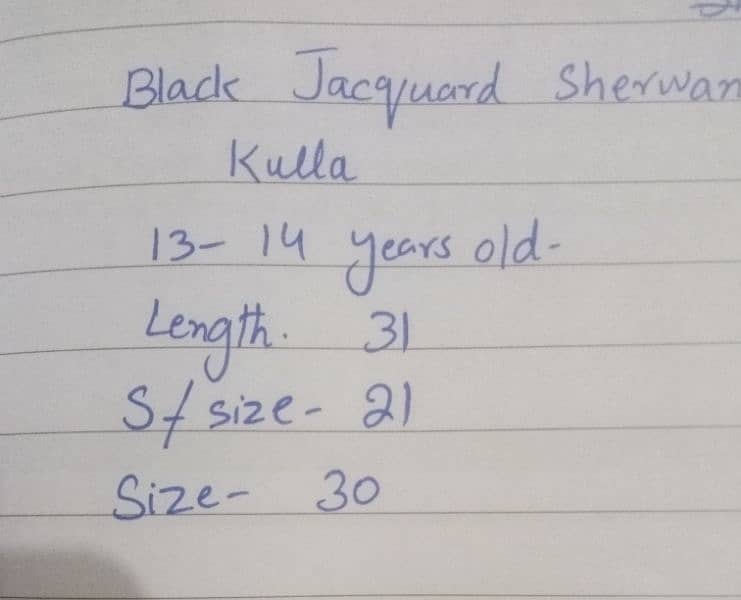 Black Jacquard Sherwan
Kulla
13- 14 years old-
Length. 31
S/ size- 21
Size- 30